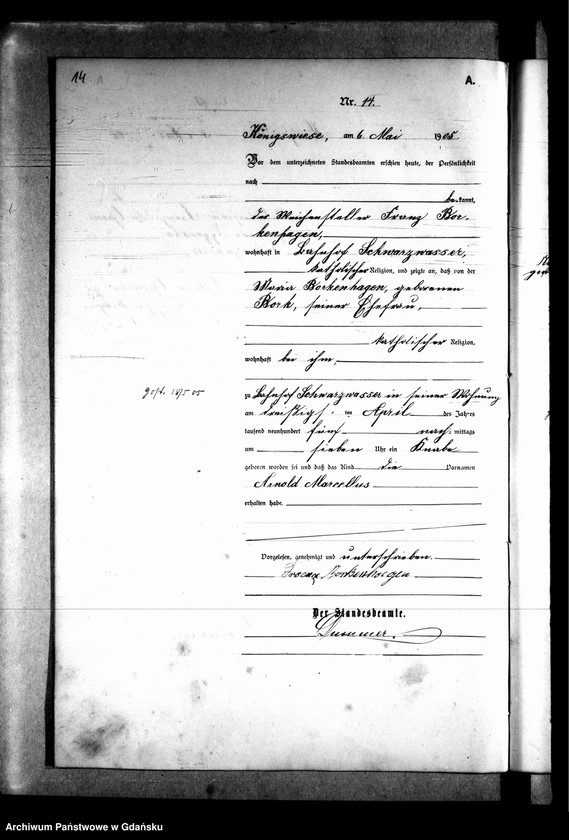 14
A.
Nr. 14.
Königswiese, am 6. Mai 1905
Vor dem unterzeichneten Standesbeamten erschien heute, der Persönlichkeit
nach
bekannt,
der Weichensteller Franz Bor-
kenhagen,
wohnhaft in Bahnhof Schwarzwasser,
katholischer Religion, und zeigte an, daß von der
Maria Borkenhagen, geborenen
Bork, seiner Ehefrau,
katholischer Religion,
wohnhaft bei ihm,
zu Bahnhof Schwarzwasser in seiner Wohnung
am dreißigsten April des Jahres
tausend neunhundert fünf nach mittags
um sieben Uhr ein Knabe
geboren worden sei und daß das Kind die Vornamen
Arnold Marcellus
erhalten habe.
Vorgelesen, genehmigt und unterschrieben.
Franz Borkenhagen
Der Standesbeamte.
Archiwum Państwowe w Gdańsku